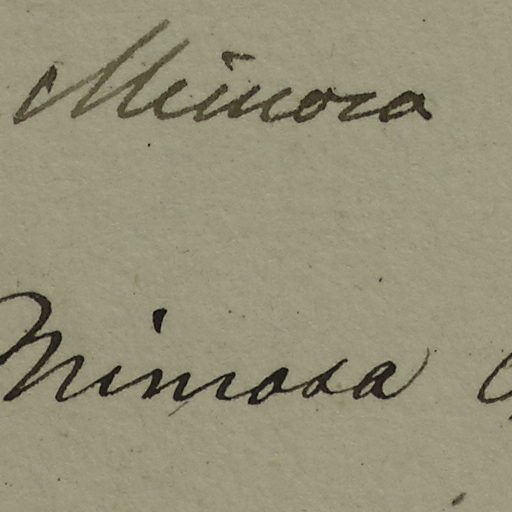 Mimosa
Mimosa